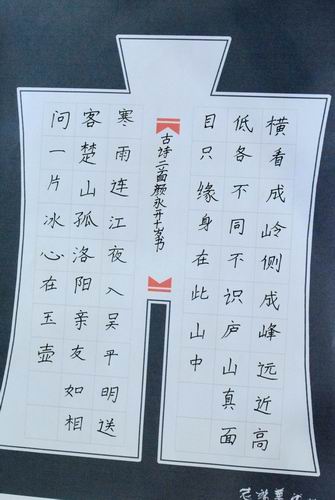 横看成岭侧成峰远近高
低各不同不识庐山真面
目只缘身在此山中
古诗二首
寒雨连江夜入吴平明送
客楚山孤洛阳亲友如相
问一片冰心在玉壶